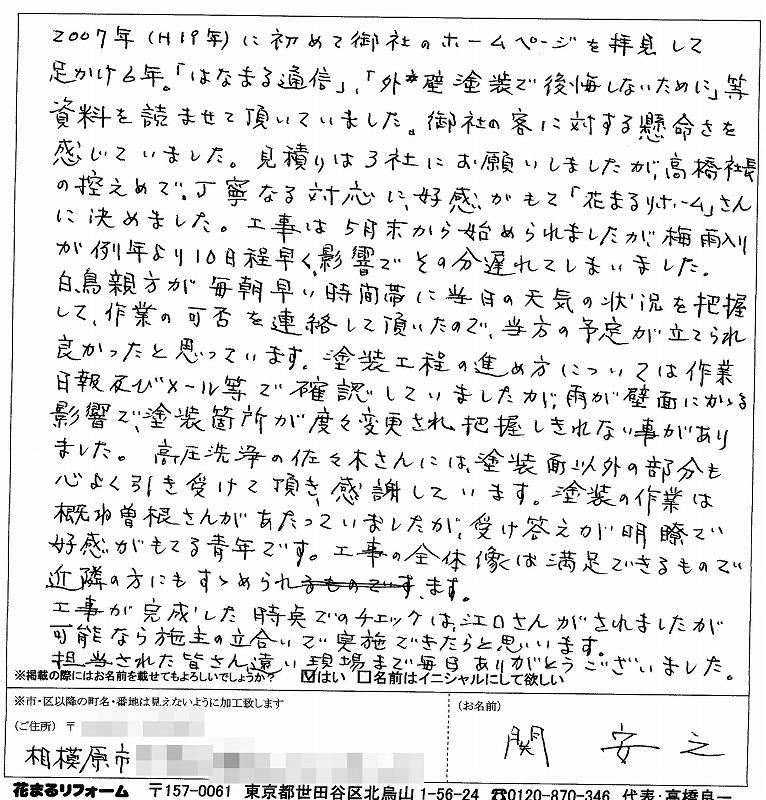 2007年(H19年)に初めて御社のホームページを拝見して
足かけ6年。「はなまる通信」、「外壁塗装で後悔しないために」等
資料を読ませて頂いていました。御社の客に対する懸命さを
感じていました。見積りは3社にお願いしましたが、高橋社長
の控えめで、丁寧なる対応に、好感がもて「花まるリホーム」さん
に決めました。工事は5月末から始められましたが、梅雨入り
が例年より10日程早く、影響でその分遅れてしまいました。
白鳥親方が毎朝早い時間帯に当日の天気の状況を把握
して、作業の可否を連絡して頂いたので、当方の予定が立てられ
良かったと思っています。塗装工程の進め方については作業
日報及びメール等で確認していましたが、雨が壁面にかかる
影響で、塗装箇所が度々変更され、把握しきれない事があり
ました。高圧洗浄の佐々木さんには、塗装面以外の部分も
心よく引き受けて頂き、感謝しています。塗装の作業は
概ね曽根さんがあたっていましたが、受け答えが明瞭で
好感がもてる青年です。工事の全体像は満足できるもので
近隣の方にもすゝめられまものです、ます。
工事が完成した時点でのチェックは、江口さんがされましたが
可能なら施主の立合いで実施できたらと思います。
担当された皆さん遠い現場まで毎日ありがとうございました。
※掲載の際にはお名前を載せてもよろしいでしょうか? ☑はい □名前はイニシャルにして欲しい
※市・区以降の町名・番地は見えないように加工致します
(ご住所) 〒
相模原市
(お名前)
関 安之
花まるリフォーム 〒157-0061 東京都世田谷区北烏山1-56-24 ☎0120-870-346 代表:高橋良一